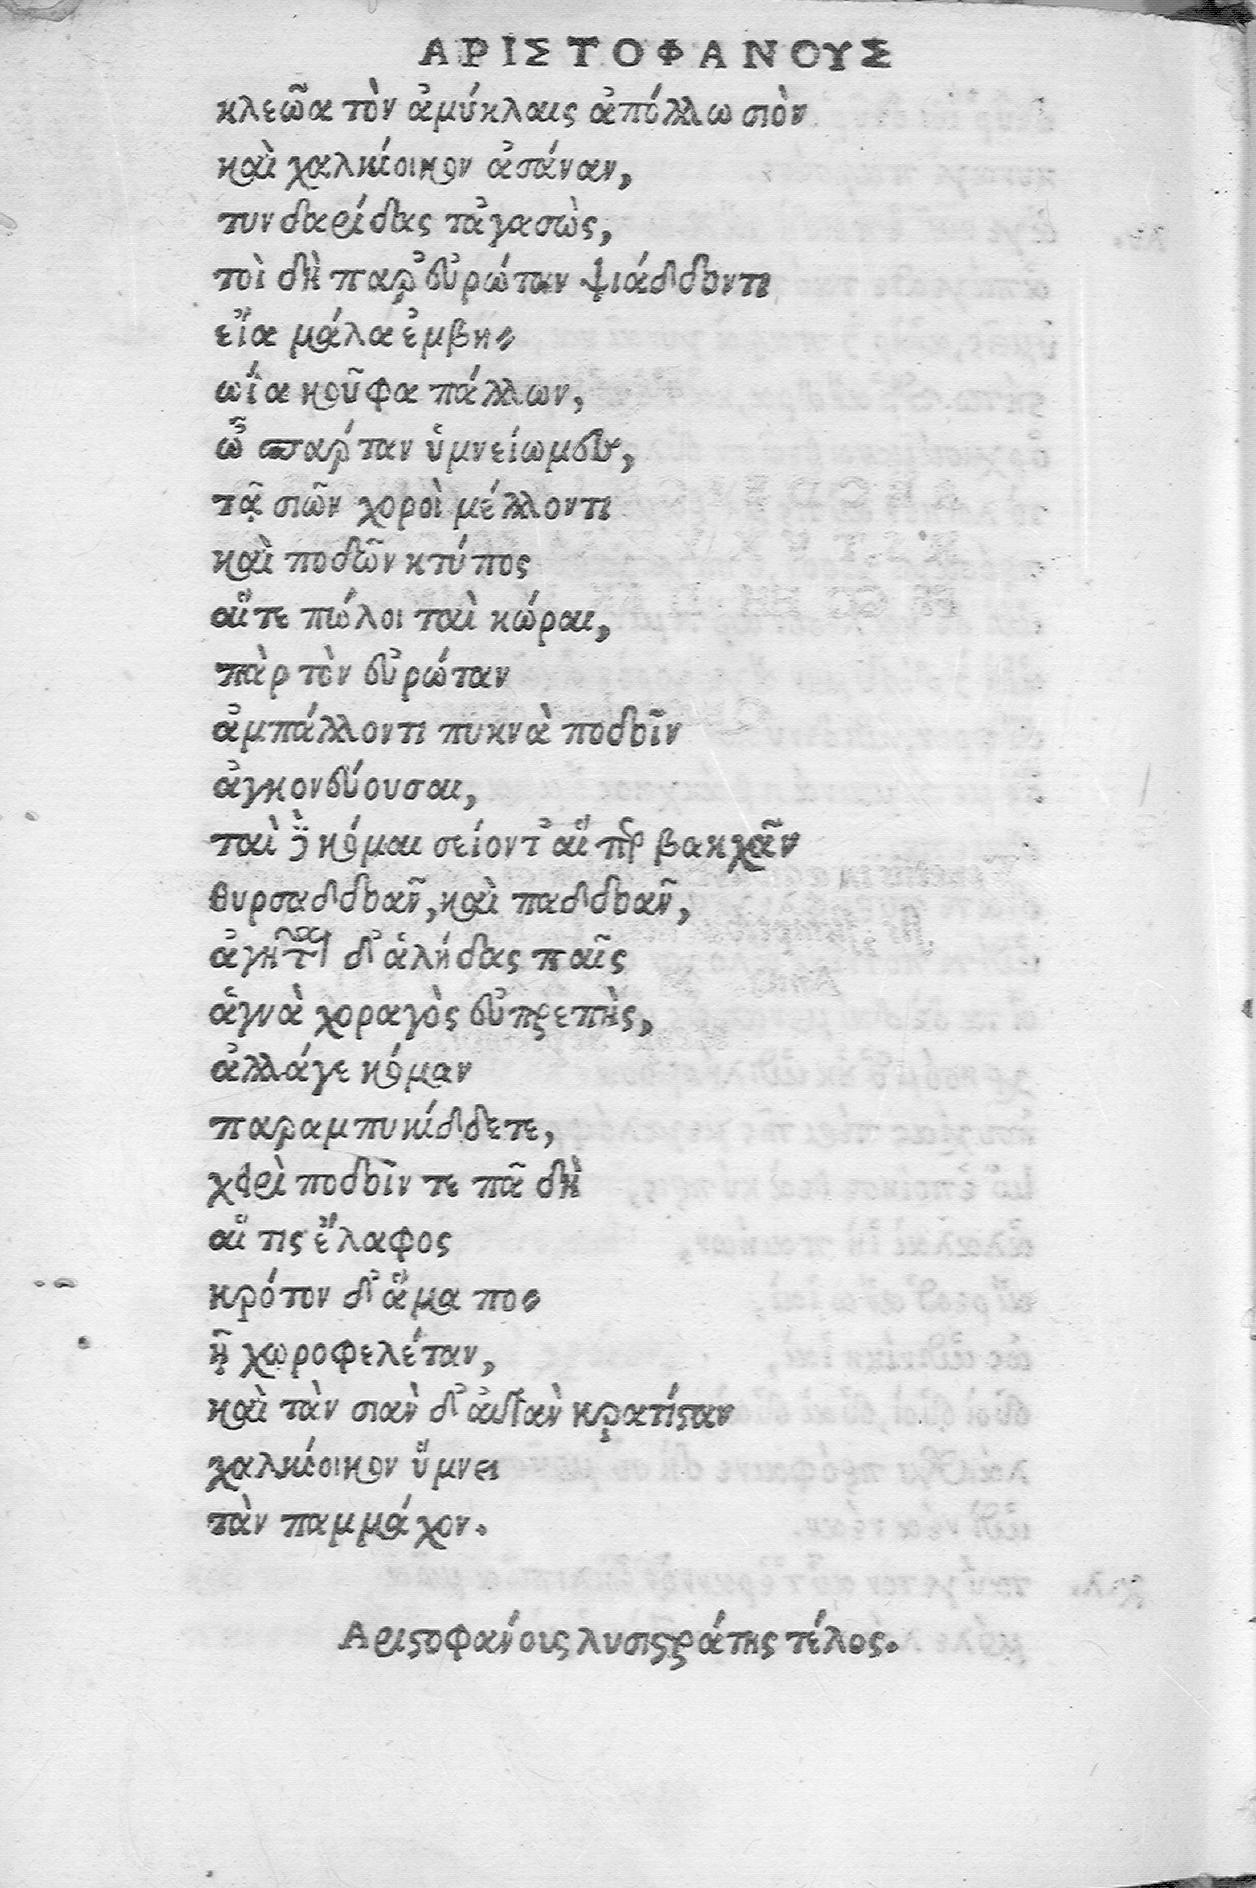 ΑΡΙΣΤΟΦΑΝΟΥΣ
κλεῶα τὸν ἀμύκλαις ἀπόλλω σιὸν
καὶ χαλκίοικον ἀσάναν,
τυνδαρίδας τἀγασὼς,
τοὶ δὴ παρ' εὐρώταν ψιάδδοντι
εἴα μάλα ἔμβη.
ωἴα κοῦφα πάλλων,
ὦ σπαρ́ταν ὑμνείωμευ,
τᾷ σιῶν χοροὶ μέλλοντι
καὶ ποδῶν κτύπος
αἵτε πῶλοι ταὶ κώραι,
πὰρ τὸν εὐρώταν
ἀμπάλλοντι πυκνὰ ποδοῖν
ἀγκονεύουσαι,
ταὶ δὲ κόμαι σείοντ' αἵ περ βακχᾶν
θυρσαδδοᾶν, καὶ παδδοᾶν,
ἁγνὰ χοραγὸς εὐπρεπὴς,
ἀλλάγε κόμαν
παραμπυκίδδετε,
χερὶ ποδοῖν τε πᾶ δὴ
αἵ τις ἔλαφος
κρότον δ' ἅμα πο.
ῇ χωροφελέταν,
καὶ τὰν σιὰν δ' αὐτὰν κρατίσταν
χαλκίοικον ὕμνει
τὰν παμμάχον.
Αριστοφάνους λυσιστράτης τέλος.